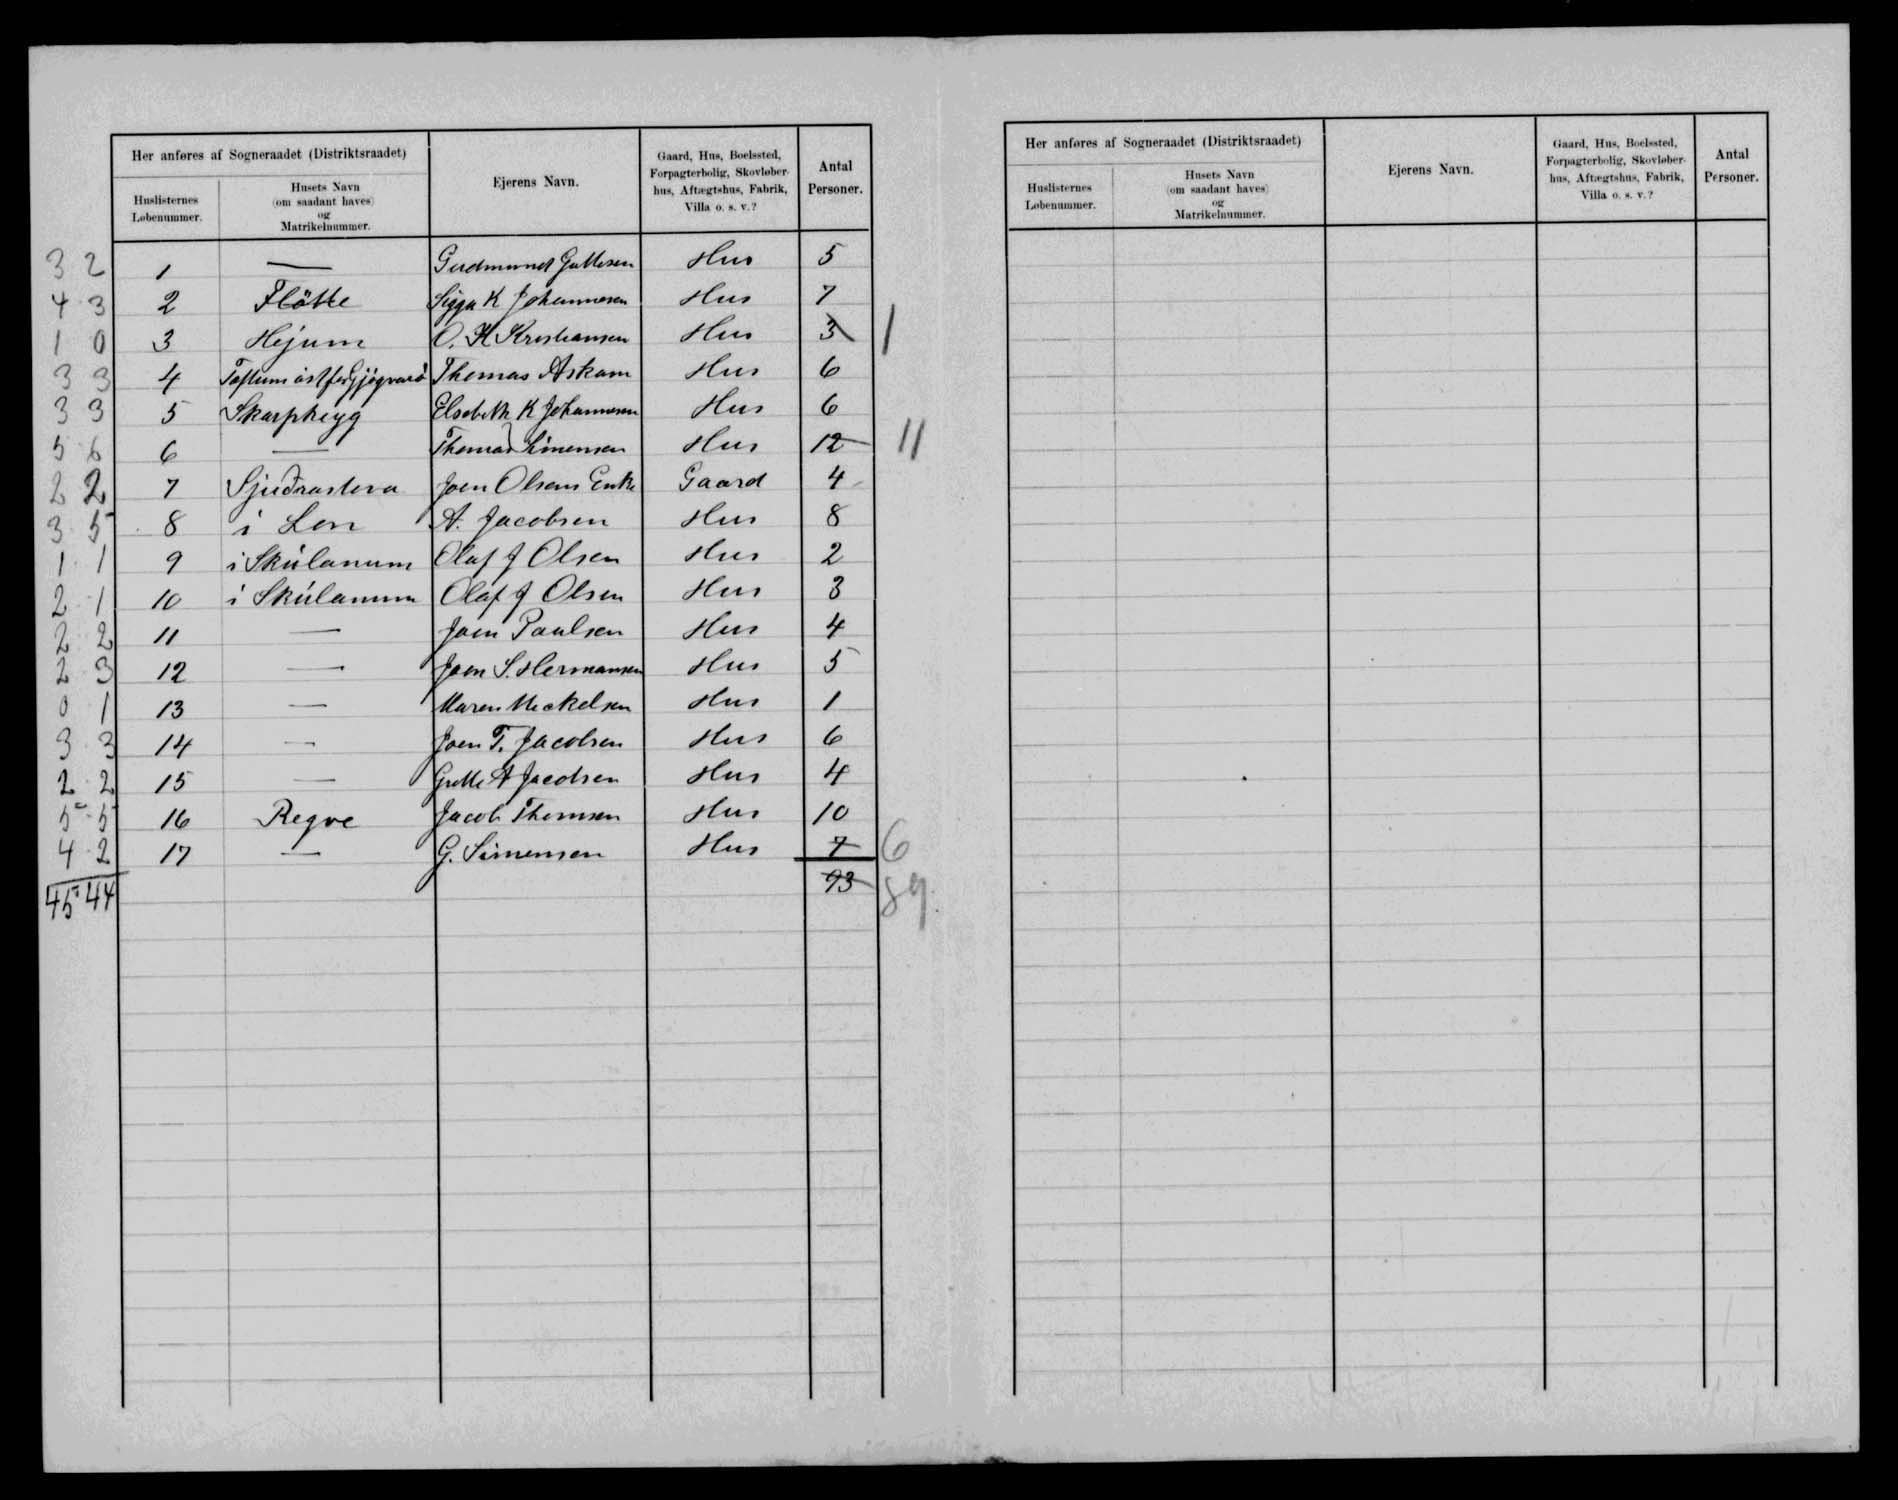 Her anføres af Sogneraadet (Distriktsraadet)
Huslisternes Løbenummer.
Husets Navn (om saadant haves) og Matrikelnummer.
Ejerens Navn.
Gaard, Hus, Boelssted, Forpagterbolig, Skovløberhus, Aftægtshus, Fabrik, Villa o. s. v.?
Antal Personer.
3 2 1 — Gudmund Guttesen Hus 5
4 3 2 Fløtte Sigga K Johannesen Hus 7
1 0 3 Hejum O. H Kristiansen Hus 3 1
3 3 4 Toftum Thomas Askam Hus 6
3 3 5 Skarpheyg Elsebeth K Johannesen Hus 6
5 6 6 — Thomas Simensen Hus 12 11
2 2 7 Sjuðrastova Joen Olsens Enke Gaard 4
3 5 8 i Lon A. Jacobsen Hus 8
1 1 9 i Skúlanum Olaf J Olsen Hus 2
2 1 10 i Skúlanum Olaf J Olsen Hus 3
2 2 11 — Joen Paulsen Hus 4
2 3 12 — Joen S. Hermansen Hus 5
0 1 13 — Maren Mickelsen Hus 1
3 3 14 — Joen T. Jacobsen Hus 6
2 2 15 — Grethe A Jacobsen Hus 4
5 5 16 Regve Jacob Thomsen Hus 10
4 2 17 — G. Simensen Hus 7 6
45 44 93 89
Her anføres af Sogneraadet (Distriktsraadet)
Huslisternes Løbenummer.
Husets Navn (om saadant haves) og Matrikelnummer.
Ejerens Navn.
Gaard, Hus, Boelssted, Forpagterbolig, Skovløberhus, Aftægtshus, Fabrik, Villa o. s. v.?
Antal Personer.